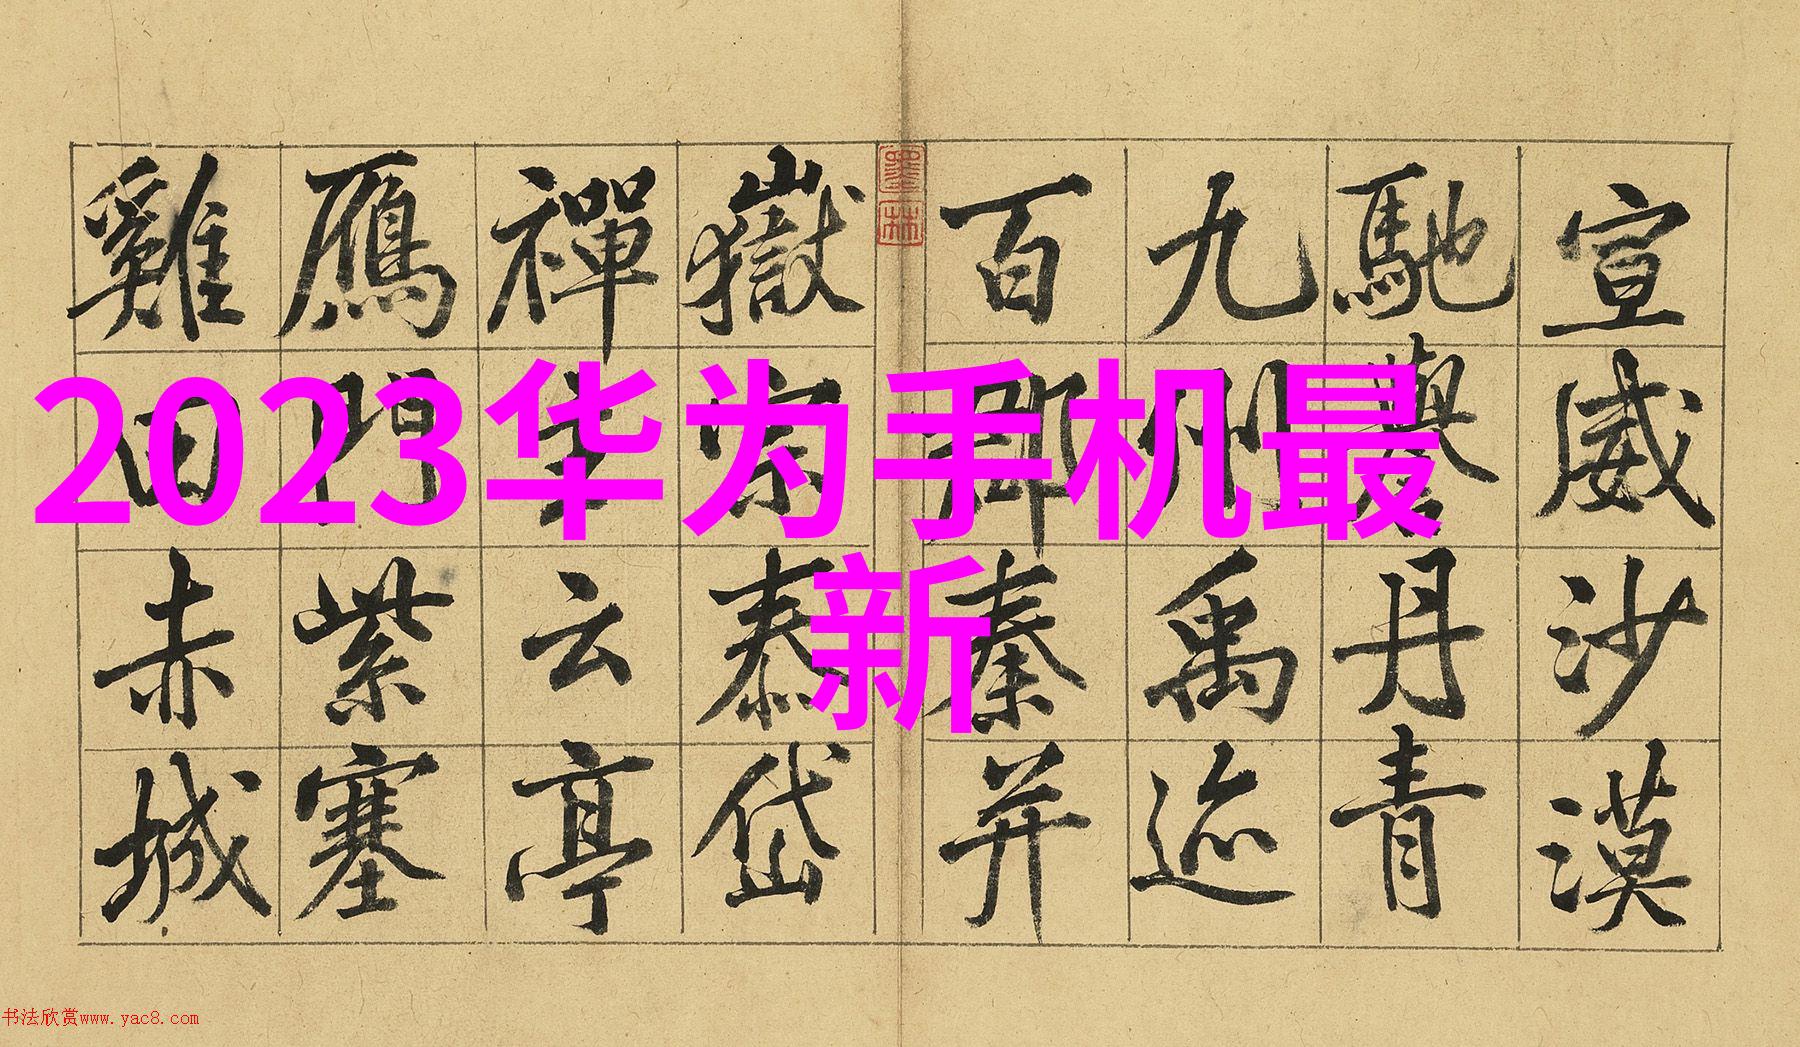 宣威沙漠
馳譽丹青
九州禹迹
百郡秦并
墨林
嶽宗泰岱
禪主云亭
鴈門紫塞
雞田赤城
2023华为手机最
新
书法欣赏www.yac8.com